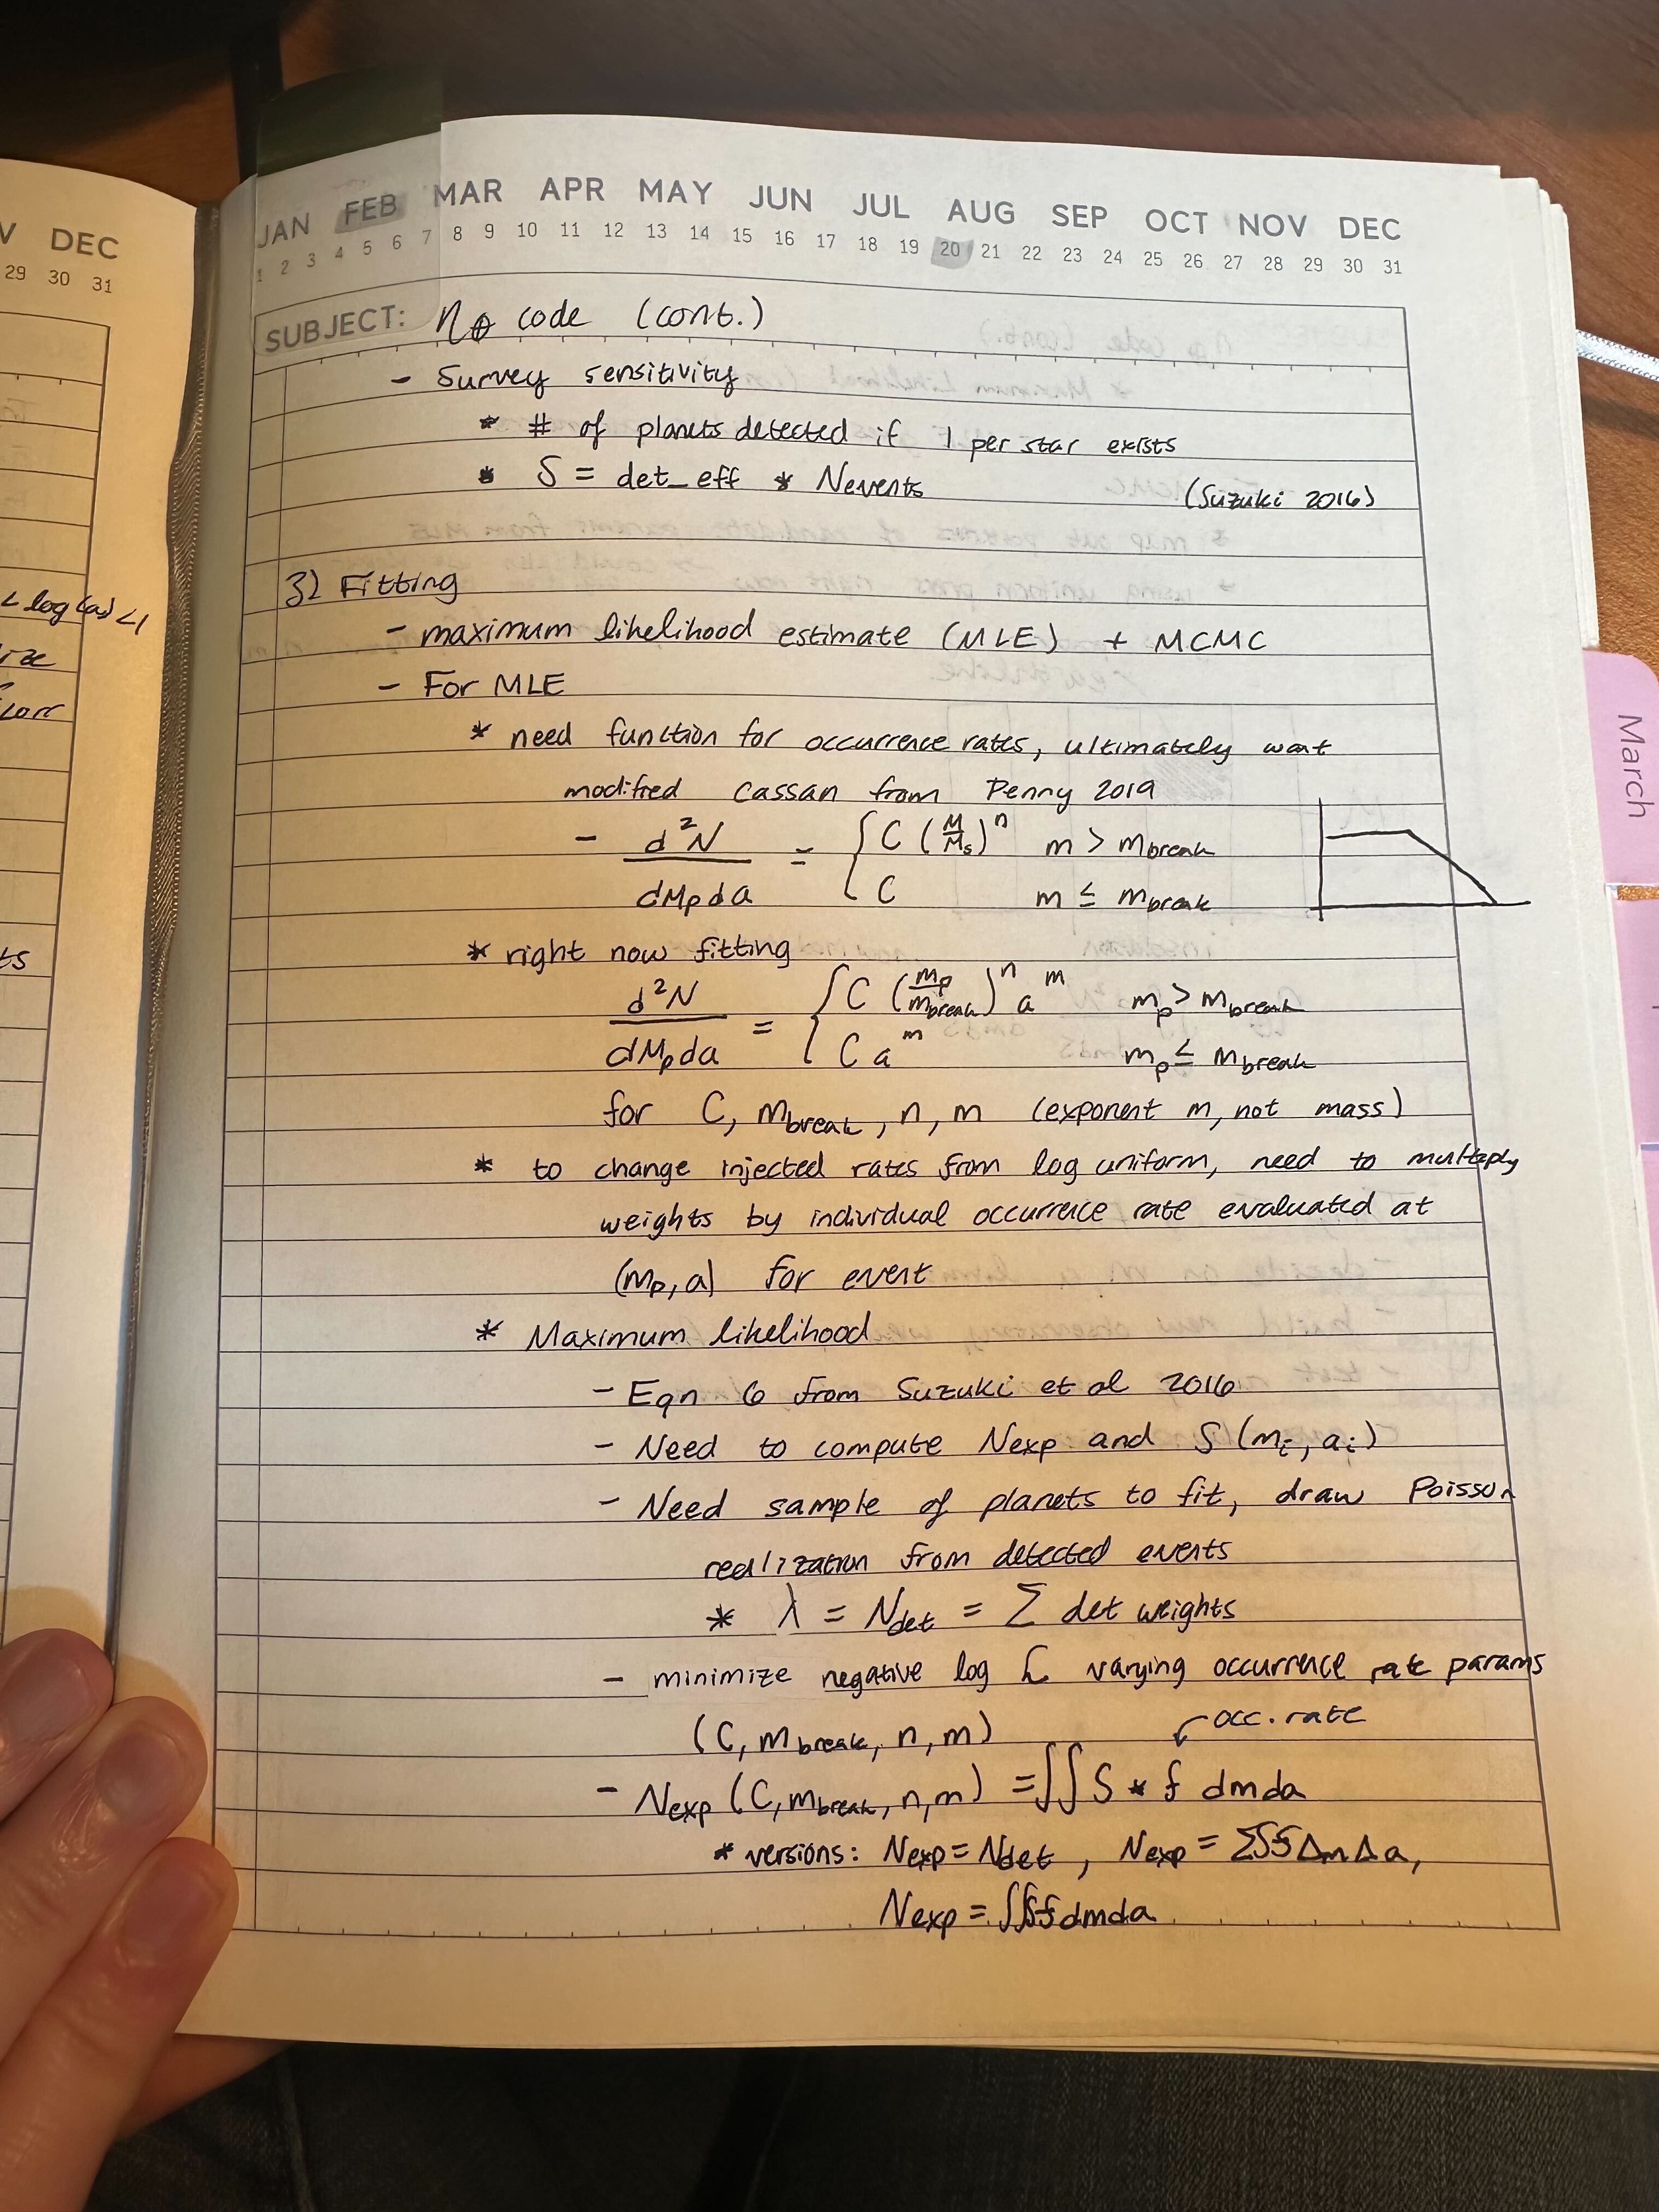 V DEC
29 30 31
< log(a) < 1
JAN FEB MAR APR MAY JUN JUL AUG SEP OCT NOV DEC
1 2 3 4 5 6 7 8 9 10 11 12 13 14 15 16 17 18 19 20 21 22 23 24 25 26 27 28 29 30 31
SUBJECT: η⊕ code (cont.)
- Survey sensitivity
* # of planets detected if 1 per star exists
* S = det_eff * Nevents (Suzuki 2016)
3) Fitting
- maximum likelihood estimate (MLE) + MCMC
- For MLE
* need function for occurrence rates, ultimately want
modified Cassan from Penny 2019
- d²N/dMp da = { C (M/Ms)^n m > mbreak
C m ≤ mbreak
* right now fitting
d²N/dMp da = { C (mp/mbreak)^n a^m mp > mbreak
C a^m mp ≤ mbreak
for C, mbreak, n, m (exponent m, not mass)
* to change injected rates from log uniform, need to multiply
weights by individual occurrence rate evaluated at
(mp, a) for event
* Maximum likelihood
- Eqn 6 from Suzuki et al 2016
- Need to compute Nexp and S(mi, ai)
- Need sample of planets to fit, draw Poisson
realization from detected events
* λ = Ndet = Σ det weights
- minimize negative log L varying occurrence rate params
(C, mbreak, n, m) occ. rate
- Nexp (C, mbreak, n, m) = ∫∫ S * f dmda
* versions: Nexp = Ndet, Nexp = ΣSf Δm Δa,
Nexp = ∫∫Sf dmda
March